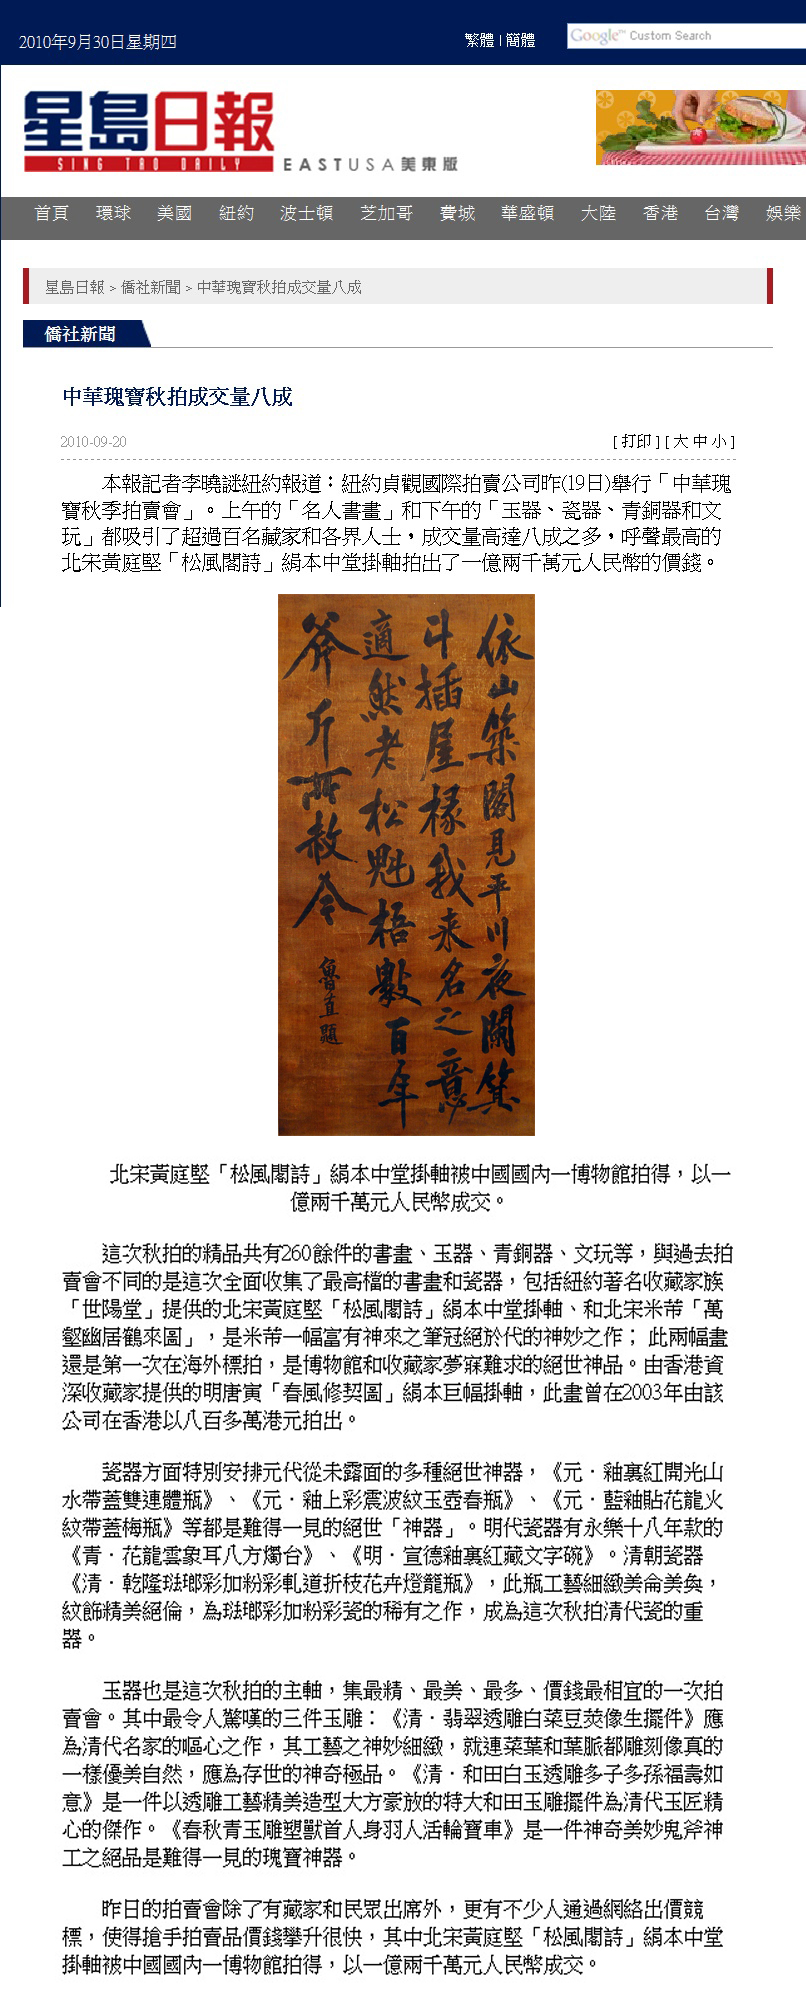 2010年9月30日星期四
繁體 | 簡體
Google™ Custom Search
星島日報
SING TAO DAILY
EASTUSA美東版
首頁 環球 美國 紐約 波士頓 芝加哥 費城 華盛頓 大陸 香港 台灣 娛樂
星島日報 > 僑社新聞 > 中華瑰寶秋拍成交量八成
僑社新聞
中華瑰寶秋拍成交量八成
2010-09-20
[ 打印 ] [ 大 中 小 ]
本報記者李曉謎紐約報道：紐約貞觀國際拍賣公司昨(19日)舉行「中華瑰
寶秋季拍賣會」。上午的「名人書畫」和下午的「玉器、瓷器、青銅器和文
玩」都吸引了超過百名藏家和各界人士，成交量高達八成之多，呼聲最高的
北宋黃庭堅「松風閣詩」絹本中堂掛軸拍出了一億兩千萬元人民幣的價錢。
依山築閣見平川夜闌箕
斗插屋椽我来名之意
適然老松魁梧數百年
斧斤所赦今
魯直題
北宋黃庭堅「松風閣詩」絹本中堂掛軸被中國國內一博物館拍得，以一
億兩千萬元人民幣成交。
這次秋拍的精品共有260餘件的書畫、玉器、青銅器、文玩等，與過去拍
賣會不同的是這次全面收集了最高檔的書畫和瓷器，包括紐約著名收藏家族
「世陽堂」提供的北宋黃庭堅「松風閣詩」絹本中堂掛軸、和北宋米芾「萬
壑幽居鶴來圖」，是米芾一幅富有神來之筆冠絕於代的神妙之作； 此兩幅畫
還是第一次在海外標拍，是博物館和收藏家夢寐難求的絕世神品。由香港資
深收藏家提供的明唐寅「春風修契圖」絹本巨幅掛軸，此畫曾在2003年由該
公司在香港以八百多萬港元拍出。
瓷器方面特別安排元代從未露面的多種絕世神器，《元．釉裏紅開光山
水帶蓋雙連體瓶》、《元．釉上彩震波紋玉壺春瓶》、《元．藍釉貼花龍火
紋帶蓋梅瓶》等都是難得一見的絕世「神器」。明代瓷器有永樂十八年款的
《青．花龍雲象耳八方燭台》、《明．宣德釉裏紅藏文字碗》。清朝瓷器
《清．乾隆琺瑯彩加粉彩軋道折枝花卉燈籠瓶》，此瓶工藝細緻美侖美奐，
紋飾精美絕倫，為琺瑯彩加粉彩瓷的稀有之作，成為這次秋拍清代瓷的重
器。
玉器也是這次秋拍的主軸，集最精、最美、最多、價錢最相宜的一次拍
賣會。其中最令人驚嘆的三件玉雕：《清．翡翠透雕白菜豆莢像生擺件》應
為清代名家的嘔心之作，其工藝之神妙細緻，就連菜葉和葉脈都雕刻像真的
一樣優美自然，應為存世的神奇極品。《清．和田白玉透雕多子多孫福壽如
意》是一件以透雕工藝精美造型大方豪放的特大和田玉雕擺件為清代玉匠精
心的傑作。《春秋青玉雕塑獸首人身羽人活輪寶車》是一件神奇美妙鬼斧神
工之絕品是難得一見的瑰寶神器。
昨日的拍賣會除了有藏家和民眾出席外，更有不少人通過網絡出價競
標，使得搶手拍賣品價錢攀升很快，其中北宋黃庭堅「松風閣詩」絹本中堂
掛軸被中國國內一博物館拍得，以一億兩千萬元人民幣成交。